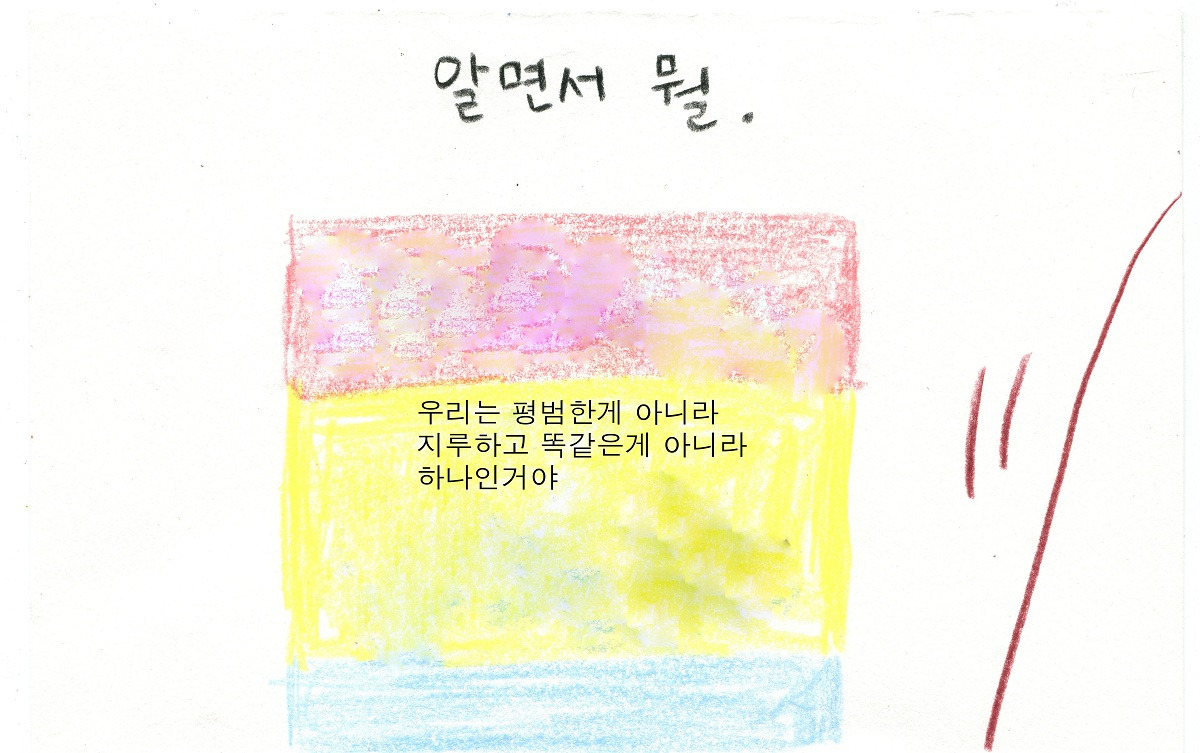 알면서 뭘.
우리는 평범한게 아니라
지루하고 똑같은게 아니라
하나인거야